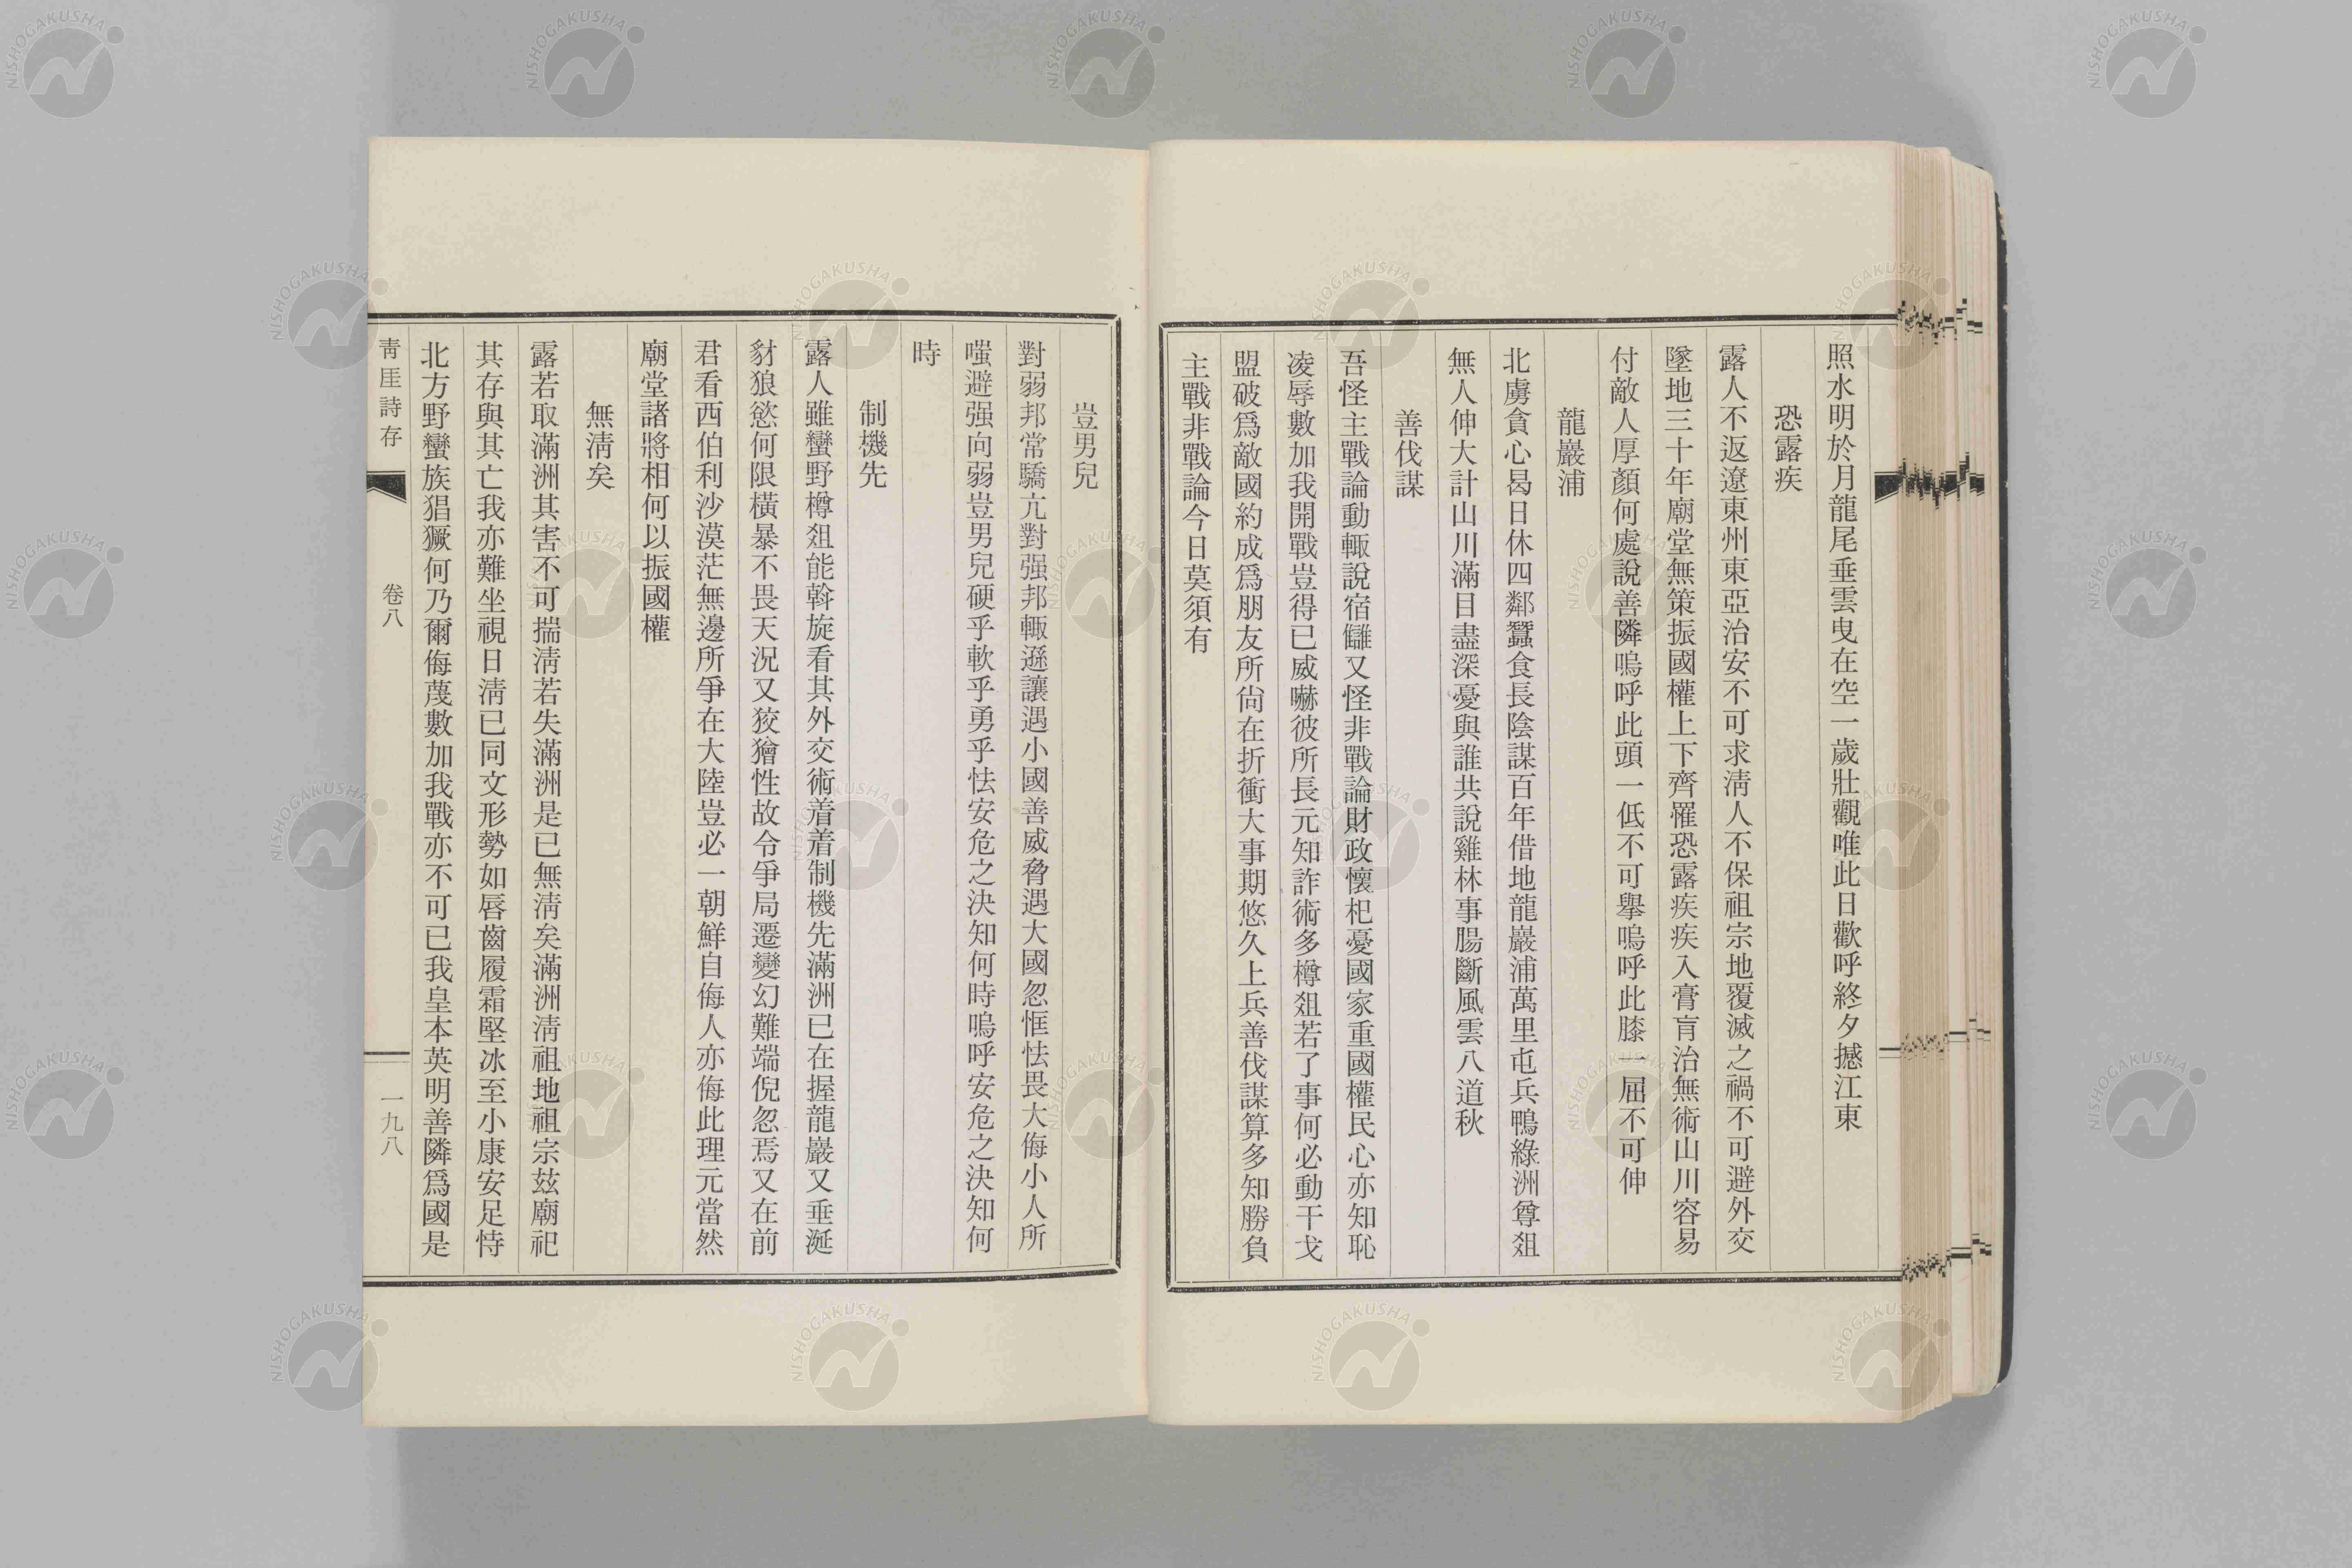 照水明於月龍尾垂雲曳在空一歲壯觀唯此日歡呼終夕撼江東
恐露疾
露人不返遼東州東亞治安不可求淸人不保祖宗地覆滅之禍不可避外交
墜地三十年廟堂無策振國權上下齊罹恐露疾疾入膏肓治無術山川容易
付敵人厚顏何處說善隣嗚呼此頭一低不可擧嗚呼此膝一屈不可伸
龍巖浦
北虜貪心曷日休四鄰蠶食長陰謀百年借地龍巖浦萬里屯兵鴨綠洲尊俎
無人伸大計山川滿目盡深憂與誰共說雞林事腸斷風雲八道秋
善伐謀
吾怪主戰論動輒說宿讎又怪非戰論財政懷杞憂國家重國權民心亦知恥
凌辱數加我開戰豈得已威嚇彼所長元知詐術多樽俎若了事何必動干戈
盟破爲敵國約成爲朋友所尙在折衝大事期悠久上兵善伐謀算多知勝負
主戰非戰論今日莫須有
豈男兒
對弱邦常驕亢對强邦輒遜讓遇小國善威脅遇大國忽恇怯畏大侮小人所
嗤避强向弱豈男兒硬乎軟乎勇乎怯安危之決知何時嗚呼安危之決知何
時
制機先
露人雖蠻野樽俎能斡旋看其外交術着着制機先滿洲已在握龍巖又垂涎
豺狼慾何限橫暴不畏天況又狡獪性故令爭局遷變幻難端倪忽焉又在前
君看西伯利沙漠茫無邊所爭在大陸豈必一朝鮮自侮人亦侮此理元當然
廟堂諸將相何以振國權
無淸矣
露若取滿洲其害不可揣淸若失滿洲是已無淸矣滿洲淸祖地祖宗玆廟祀
其存與其亡我亦難坐視日淸已同文形勢如唇齒履霜堅冰至小康安足恃
北方野蠻族猖獗何乃爾侮蔑數加我戰亦不可已我皇本英明善隣爲國是
靑厓詩存
卷八
一九八
NISHOGAKUSHA